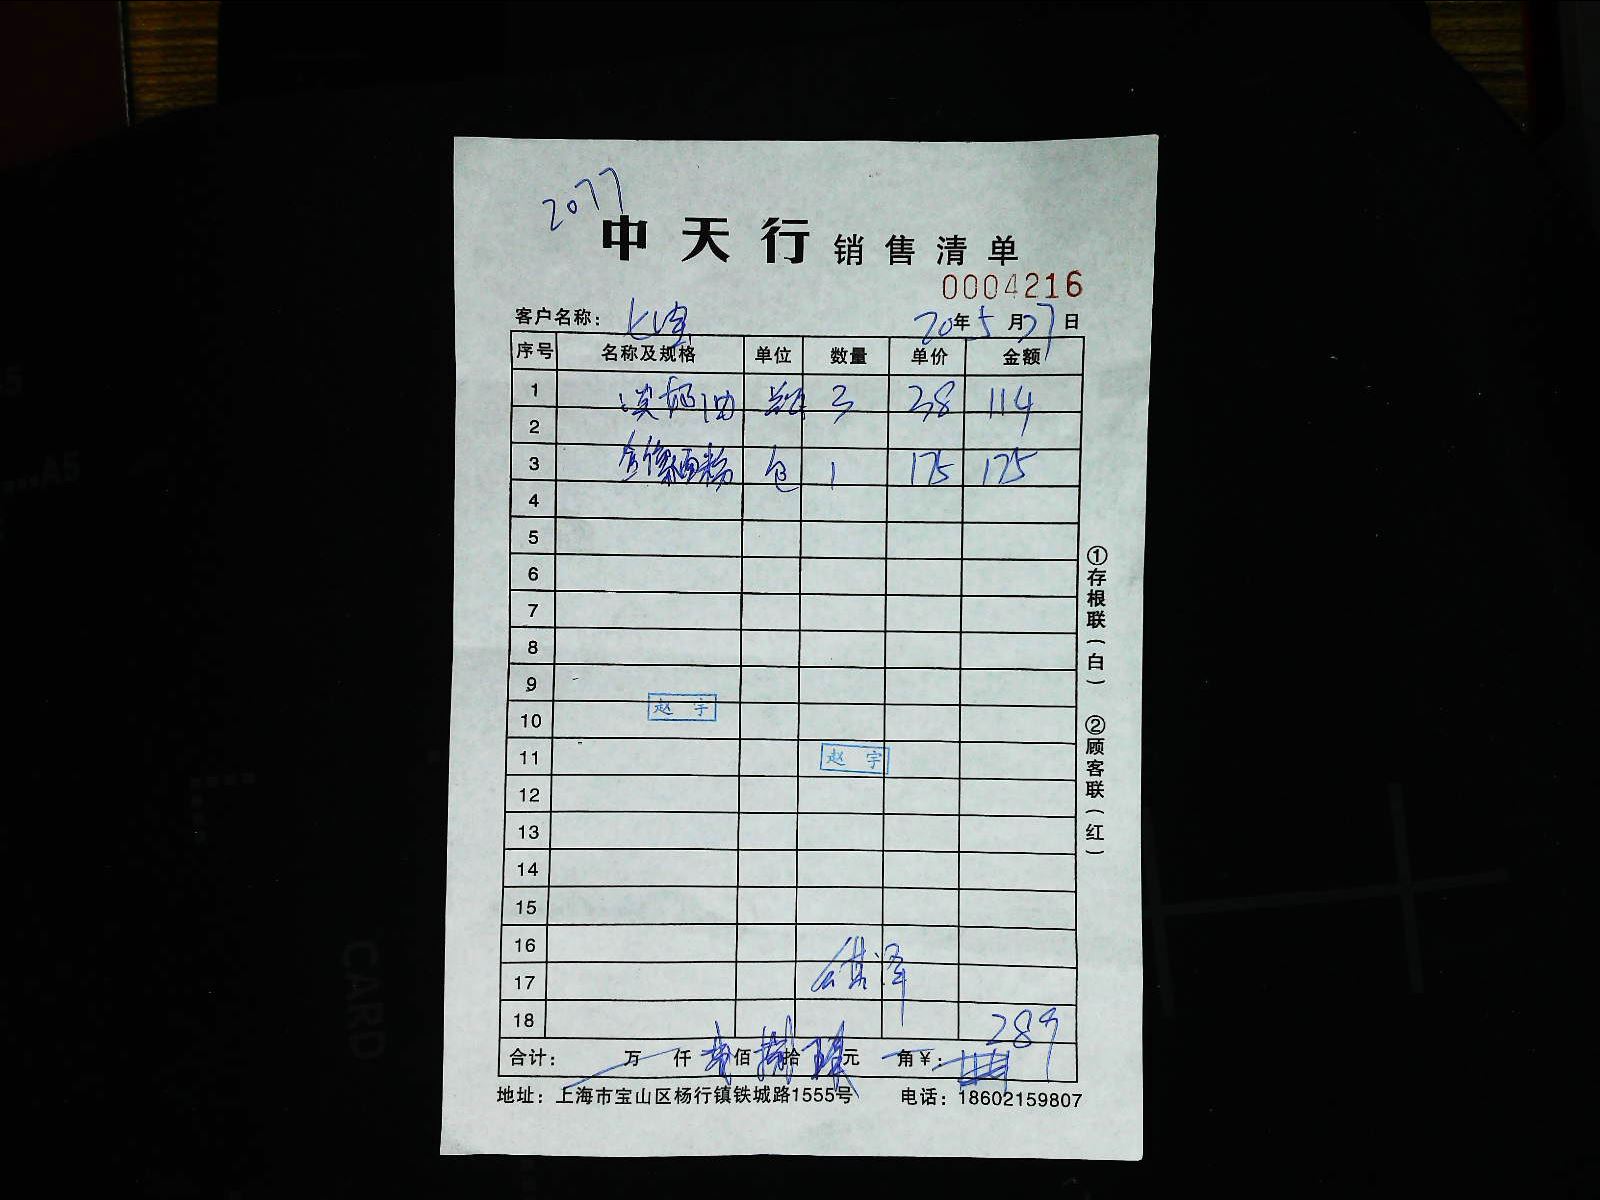 2077
中天行销售清单
0004216
客户名称： 七宝 20年5月27日
序号 名称及规格 单位 数量 单价 金额
1 淡奶油 3 38 114
2
3 金像面粉 包 1 175 175
4
5
6
7
8
9
赵宇
10
11 赵宇
12
13
14
15
16
17
18 289
合计： 万 仟 佰 拾 元 角 ¥：
地址：上海市宝山区杨行镇铁城路1555号 电话：18602159807
①存根联（白） ②顾客联（红）
CARD
A5